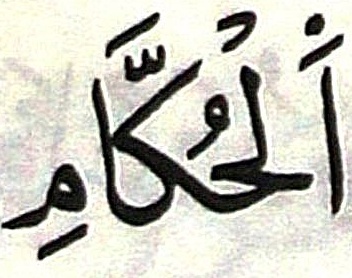 اَلْحُكَّامِ